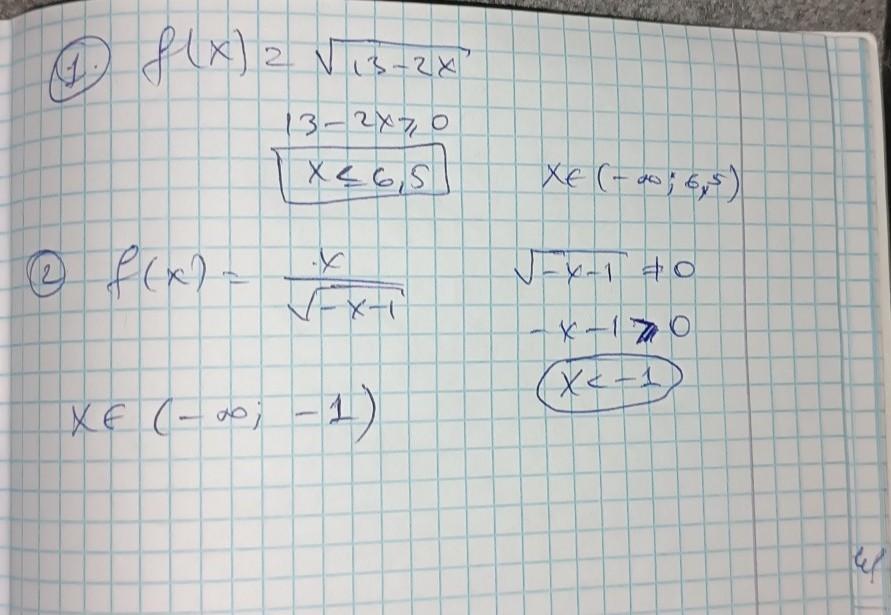 1. f(x) = √(13-2x)
13-2x ⩾ 0
x ≤ 6,5
x∈(-∞; 6,5)
2 f(x) = x / √(-x-1)
√(-x-1) ≠ 0
-x-1 ⩾ 0
x < -1
x∈(-∞; -1)